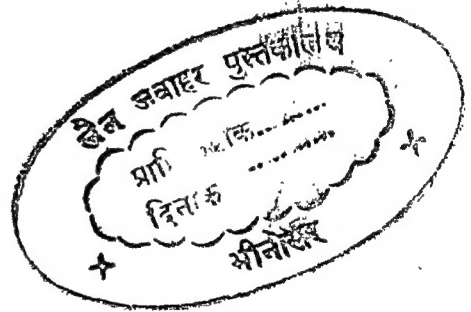 जैन जवाहर पुस्तकालय
दिनांक
भीनासर